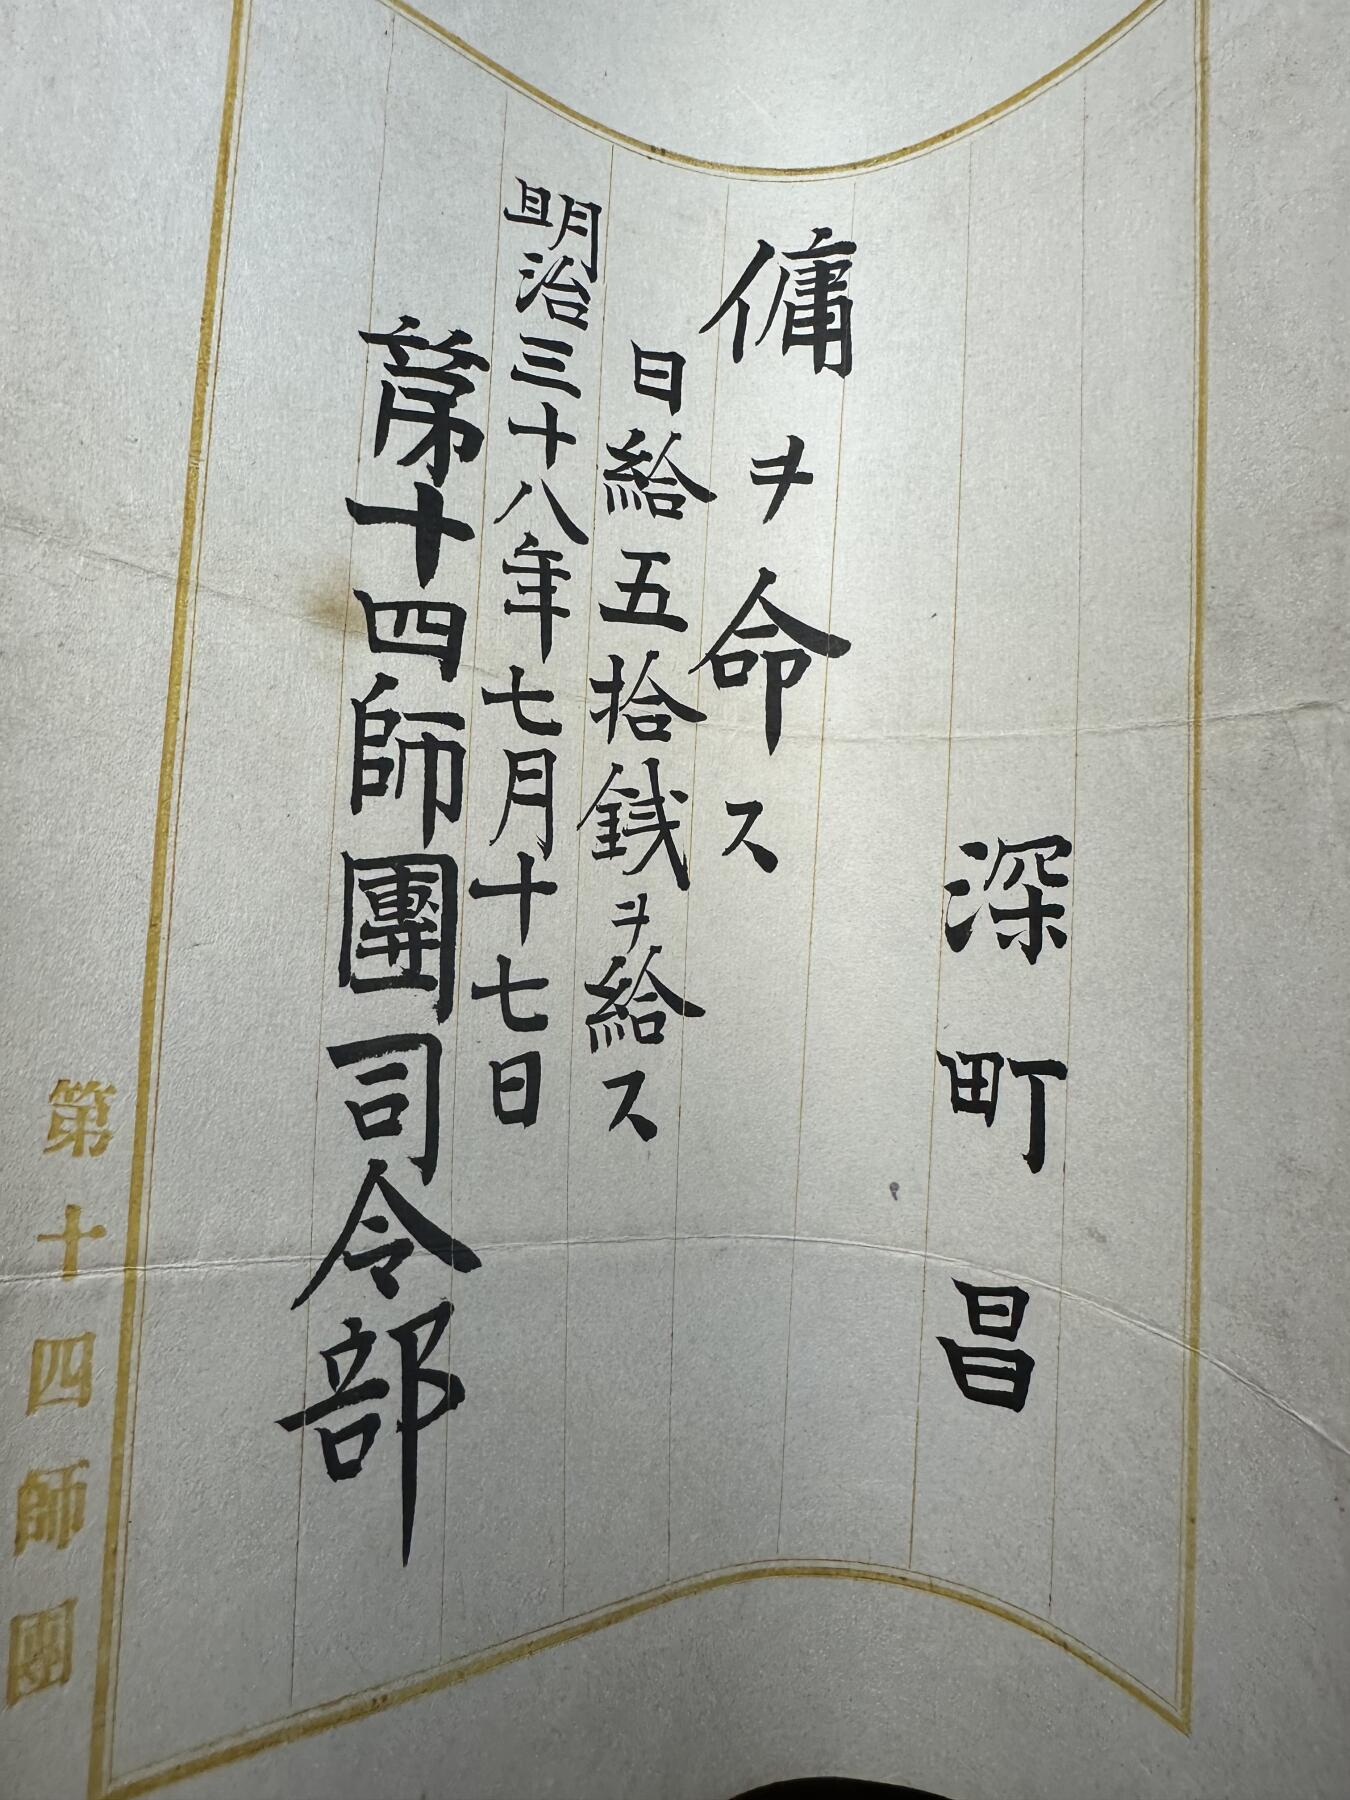 深町昌
傭ヲ命ス
日給五拾銭ヲ給ス
明治三十八年七月十七日
第十四師團司令部
第十四師團